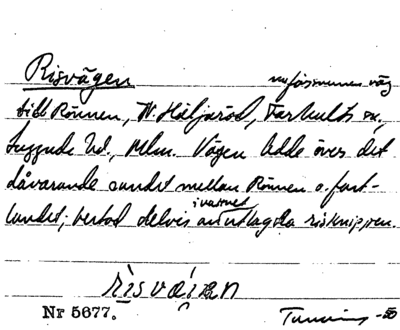 Risvägen nu försvunnen väg
till Rönnen, N. Häljaröd, Farhults sn.,
Luggude hd., Mlm. Vägen ledde över det
dåvarande sundet mellan Rönnen o. fast-
landet; bestod delvis av i vattnet utlagda risknippen.
risvä⁀ien
Nr 5677. -50